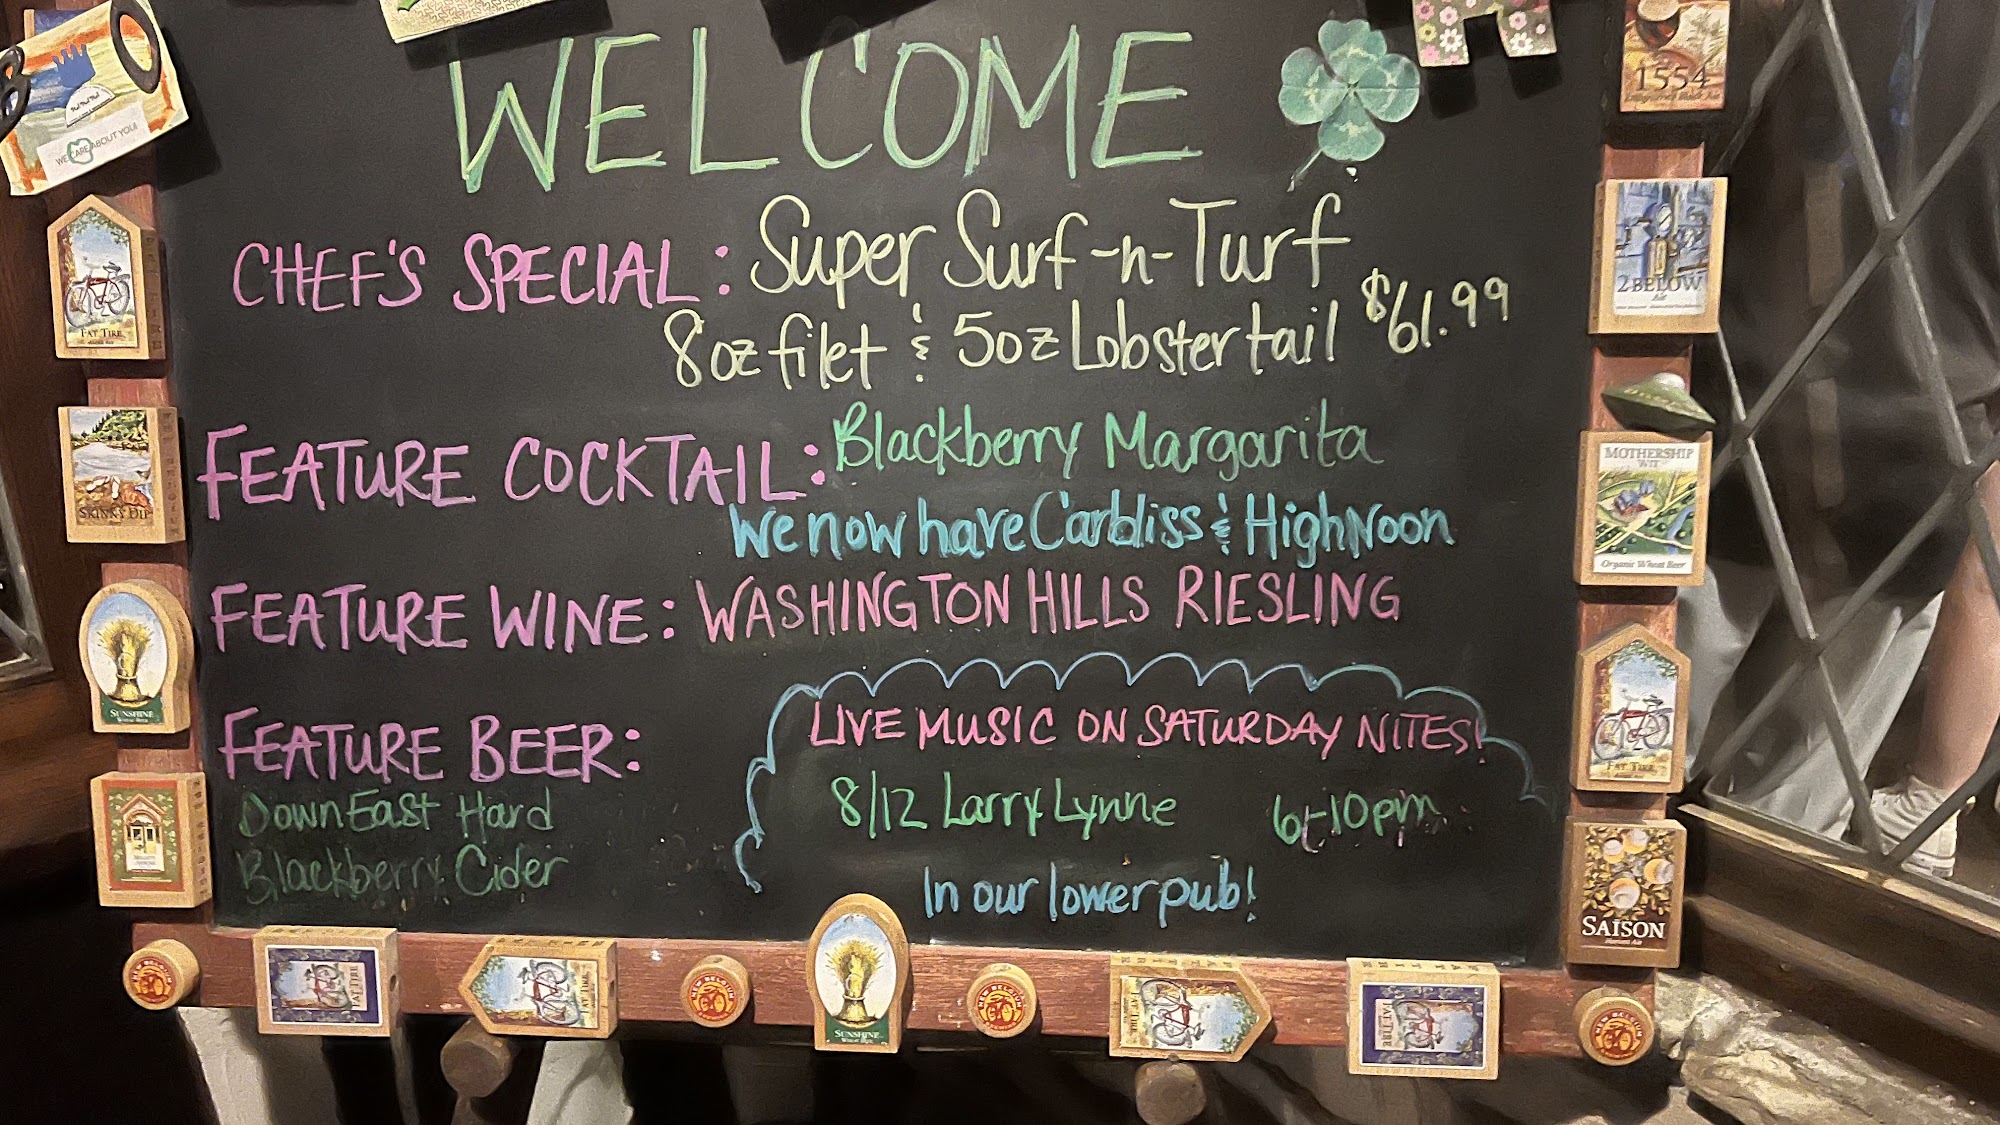 WELCOME
CHEF'S SPECIAL: Super Surf-n-Turf
8oz filet & 5oz Lobster tail $61.99
FEATURE COCKTAIL: Blackberry Margarita
We now have Carbliss & HighNoon
FEATURE WINE: WASHINGTON HILLS RIESLING
FEATURE BEER:
DownEast Hard
Blackberry Cider
LIVE MUSIC ON SATURDAY NITES!
8/12 Larry Lynne 6-10pm
In our lower pub!
WE CARE ABOUT YOU!
FAT TIRE
SKINNY DIP
SUNSHINE
WHEAT BEER
1554
2° BELOW
Ale
MOTHERSHIP
WIT
Organic Wheat Beer
FAT TIRE
SAISON
Harvest Ale
FAT TIRE
FAT TIRE
NEW BELGIUM
SUNSHINE
WHEAT BEER
NEW BELGIUM
BREWING
FAT TIRE
FAT TIRE
NEW BELGIUM